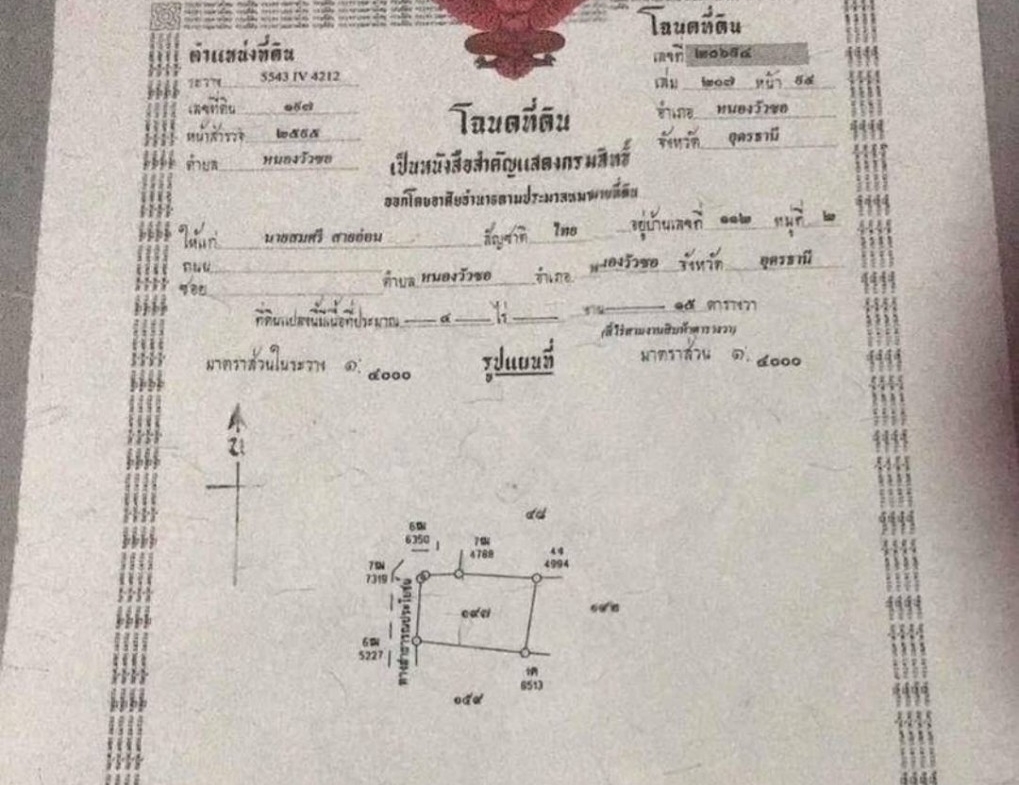 โฉนดที่ดิน
ตำแหน่งที่ดิน
เลขที่ ๒๐๖๕๔
ระวาง 5543 IV 4212
เล่ม ๒๐๗ หน้า ๕๔
เลขที่ดิน ๑๔๗
อำเภอ หนองวัวซอ
โฉนดที่ดิน
หน้าสำรวจ ๒๕๕๕
จังหวัด อุดรธานี
ตำบล หนองวัวซอ
เป็นหนังสือสำคัญแสดงกรรมสิทธิ์
ออกโดยอาศัยอำนาจตามประมวลกฎหมายที่ดิน
ให้แก่ นายสมศรี สายอ่อน สัญชาติ ไทย อยู่บ้านเลขที่ ๑๑๒ หมู่ที่ ๒
ถนน
ซอย ตำบล หนองวัวซอ อำเภอ หนองวัวซอ จังหวัด อุดรธานี
ที่ดินแปลงนี้มีเนื้อที่ประมาณ ๔ ไร่ งาน ๑๕ ตารางวา
(สี่ไร่สามงานสิบห้าตารางวา)
มาตราส่วนในระวาง ๑: ๔๐๐๐ รูปแผนที่ มาตราส่วน ๑: ๔๐๐๐
น
๔๘
6฿
6350
7฿
4788
4จ
4994
7฿
7319
ทางสาธารณประโยชน์
๑๔๗
๑๔๒
5227
1ค
6513
๑๕๙